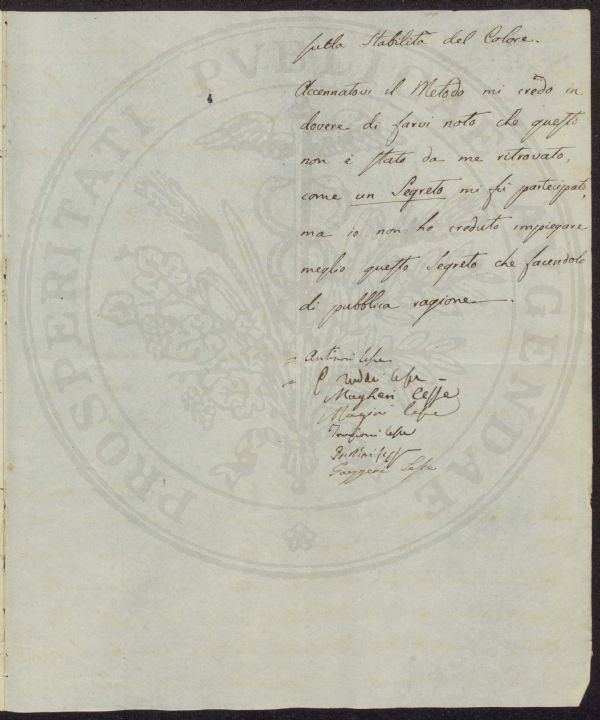 sulla Stabilità del Colore.
Accennatovi il Metodo mi credo in
dovere di farvi noto che questo
non è stato da me ritrovato,
come un Segreto mi fu partecipato,
ma io non ho creduto impiegare
meglio questo Segreto che facendolo
di pubblica ragione.
Antinori lesse
P. Taddei lesse
Magheri lesse
lesse
Targioni lesse
lesse
Gazzeri lesse
PROSPERITATI PUBLICAE AUGENDAE